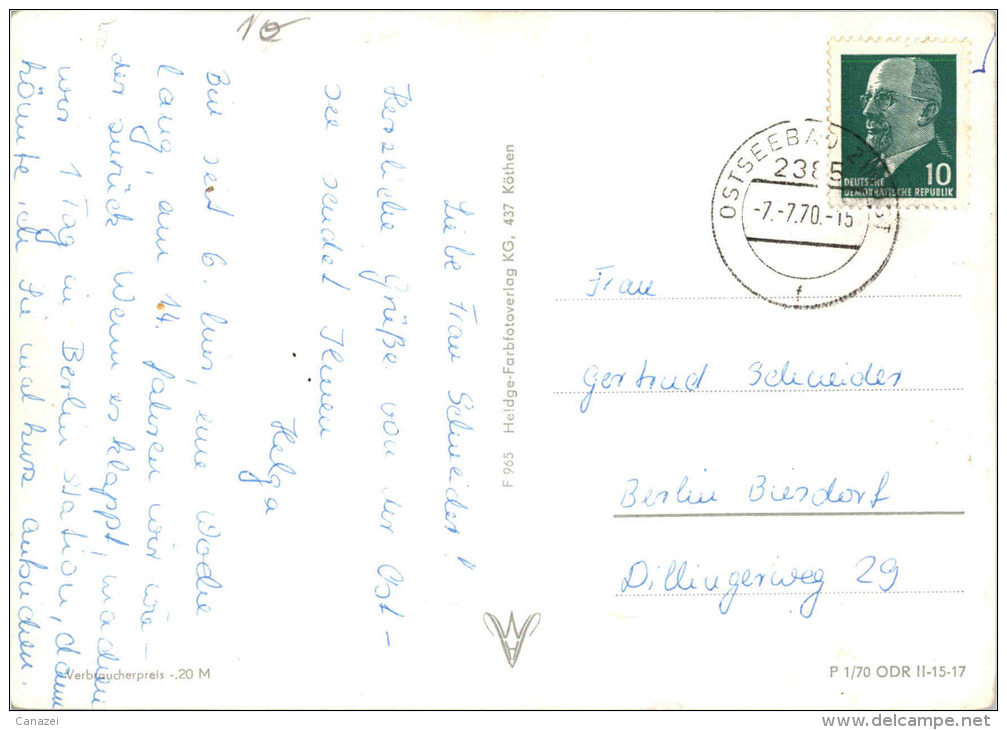 10
Liebe Frau Schneider!
Herzliche Grüße von der Ost-
see sendet Ihnen
Helga
Bin seit 6. hier, eine Woche
lang, am 14. fahren wir wie-
der zurück. Wenn es klappt, machen
wir 1 Tag in Berlin Station, dann
könnte ich Sie mal kurz aufsuchen.
Verbraucherpreis -,20 M
F 965 Heldge-Farbfotoverlag KG, 437 Köthen
OSTSEEBAD
2385
-7.-7.70.-15
f
10
DEUTSCHE
DEMOKRATISCHE REPUBLIK
Frau
Gertrud Schneider
Berlin Biesdorf
Dillingerweg 29
P 1/70 ODR II-15-17
Canazei
www.delcampe.net